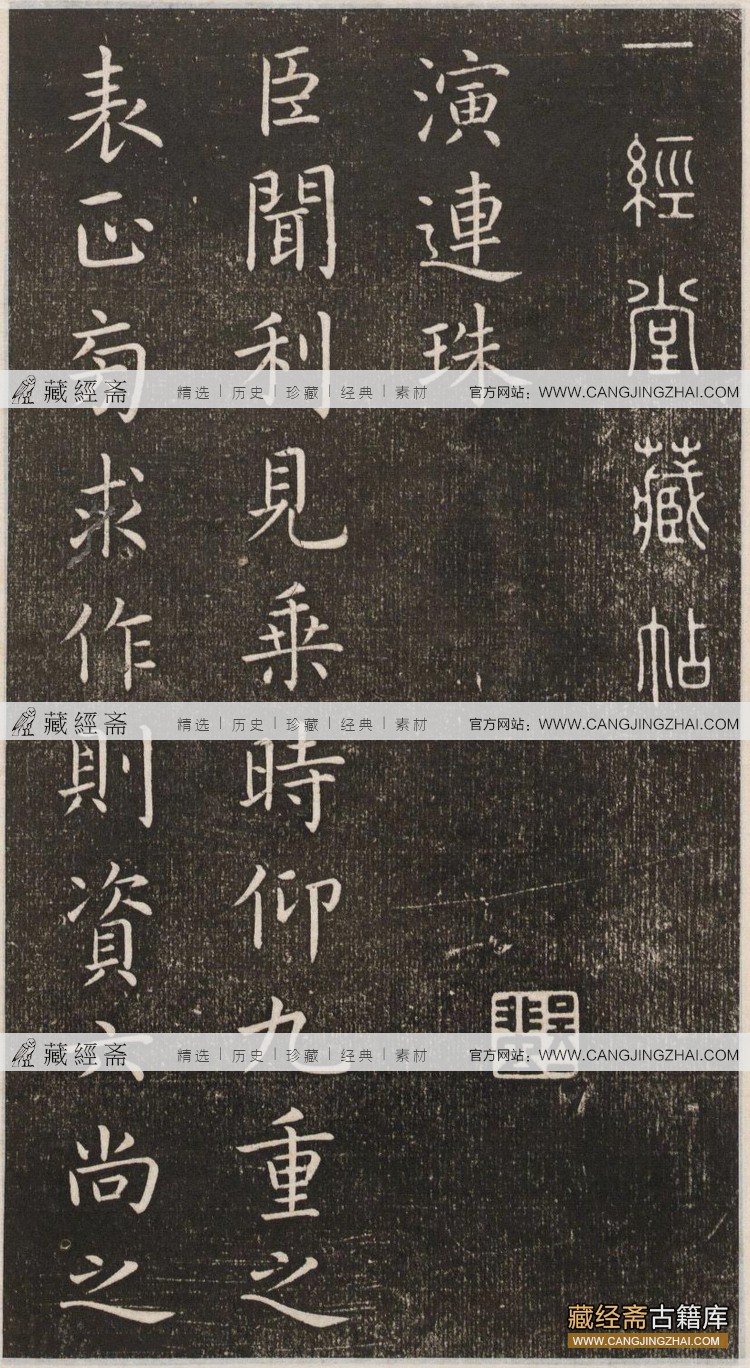 一經堂藏帖
演連珠
臣聞利見乗時仰九重之
表正旁求作則資六尚之
藏經斋 精选 | 历史 | 珍藏 | 经典 | 素材 官方网站：WWW.CANGJINGZHAI.COM
藏經斋 精选 | 历史 | 珍藏 | 经典 | 素材 官方网站：WWW.CANGJINGZHAI.COM
藏經斋 精选 | 历史 | 珍藏 | 经典 | 素材 官方网站：WWW.CANGJINGZHAI.COM
藏经斋古籍库
WWW.CANGJINGZHAI.COM